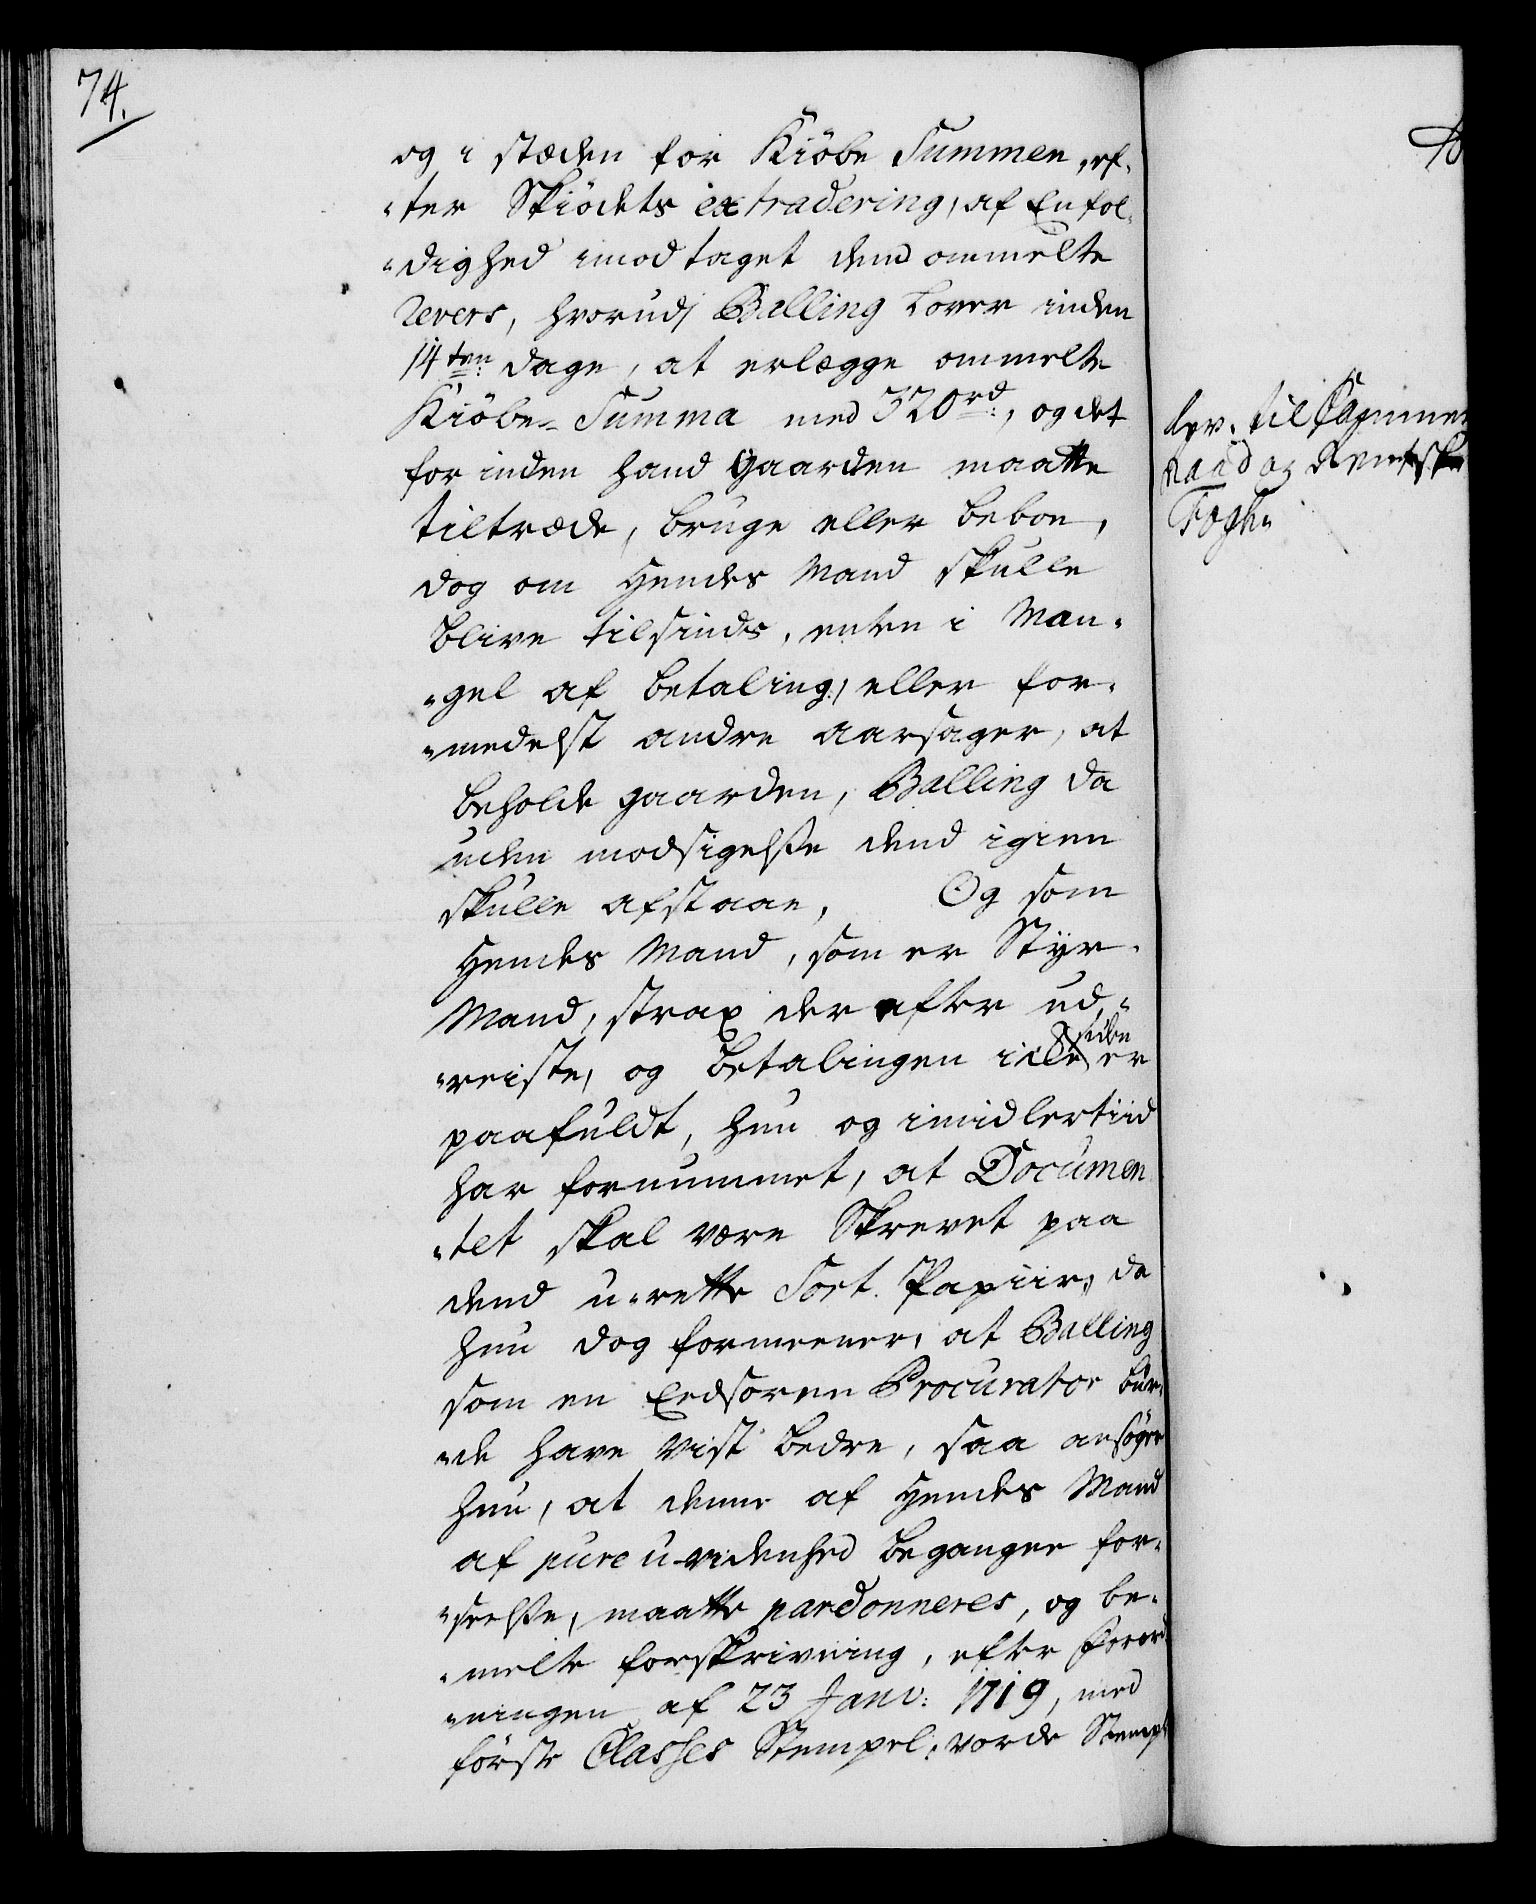 74.
og i stæden for Kiöbe Summen, ef-
"ter Skiödets extradering, af Enfol-
"dighed imodtaget dend ommelte
Revers, hvorudj Balling Lover inden
14ten dage, at erlægge ommelte
Kiöbe-Summa med 320rd:, og det
for inden hand Gaarden maatte
tiltræde, bruge eller beboe,
dog om Hendes Mand skulle
blive tilsinds, enten i Man-
"gel af betaling, eller for-
"medelst andre aarsager, at
beholde gaarden, Balling da
uden modsigelsse dend igien
skulle afstaae, Og som
Hendes Mand, som er Styr-
Mand, strax der efter ud-
"reiste, og betalingen icke siden er
paafuldt, hun og imidlertiid
har fornummet, at Documen
"tet skal være Skrevet paa
dend u-rette Sort Papiir, da
hun dog formeener, at Balling
som en Eedsoren Procurator bur-
"de have vist bedre, saa ansøger
hun, at denne af Hendes Mand
af pure u-videnhed begangne for-
"seelsse, maatte pardonneres, og be-
"melte forskrivning, efter Forord-
"ningen af 23 Janv: 1719, med
förste Classes Stempel, vorde Stempl
lev. til Cammer
raad og Rentskr
Fogh.